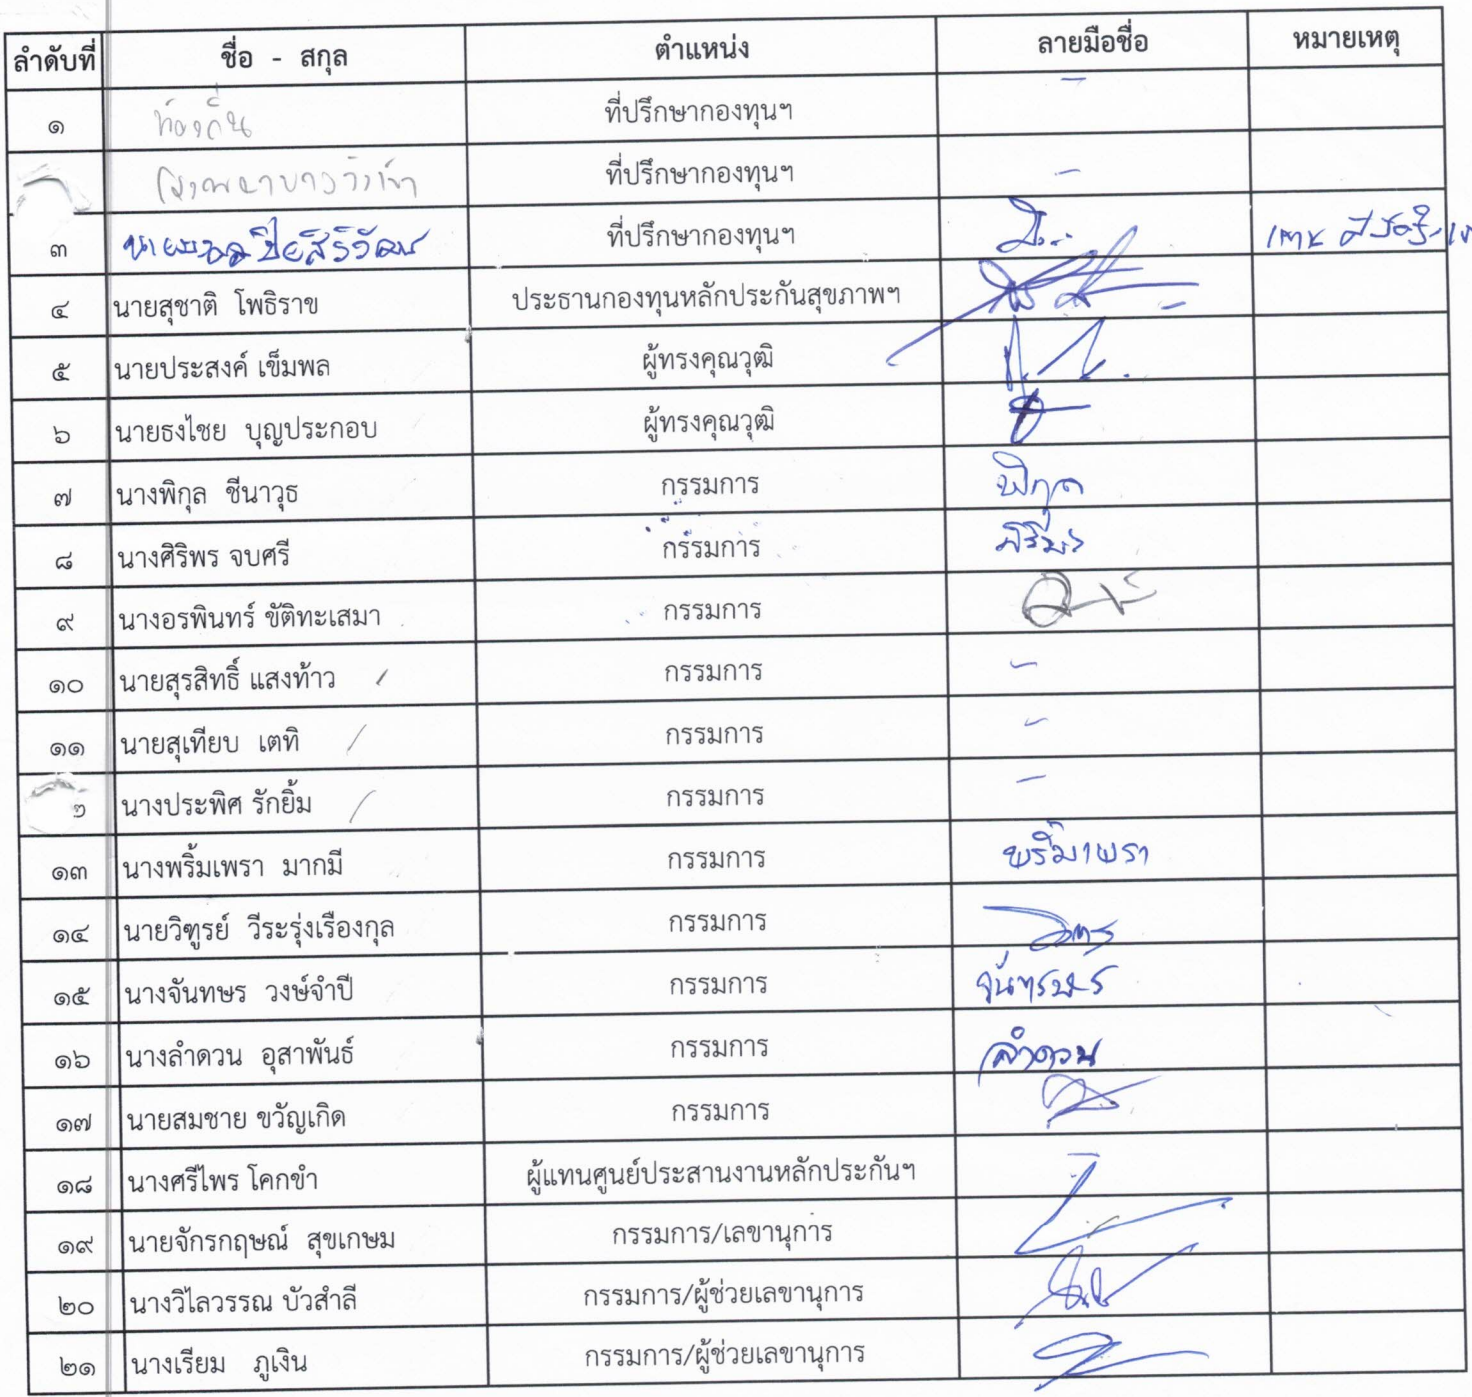 ลำดับที่ ชื่อ - สกุล ตำแหน่ง ลายมือชื่อ หมายเหตุ
๑ ท้องถิ่น ที่ปรึกษากองทุนฯ -
ที่ปรึกษากองทุนฯ -
๓ ที่ปรึกษากองทุนฯ
๔ นายสุชาติ โพธิราช ประธานกองทุนหลักประกันสุขภาพฯ
๕ นายประสงค์ เข็มพล ผู้ทรงคุณวุฒิ
๖ นายธงไชย บุญประกอบ ผู้ทรงคุณวุฒิ
๗ นางพิกุล ชีนาวุธ กรรมการ พิกุล
๘ นางศิริพร จบศรี กรรมการ ศิริพร
๙ นางอรพินทร์ ขัติทะเสมา กรรมการ
๑๐ นายสุรสิทธิ์ แสงท้าว / กรรมการ -
๑๑ นายสุเทียบ เตทิ / กรรมการ -
๒ นางประพิศ รักยิ้ม / กรรมการ -
๑๓ นางพริ้มเพรา มากมี กรรมการ พริ้มเพรา
๑๔ นายวิฑูรย์ วีระรุ่งเรืองกุล กรรมการ
๑๕ นางจันทษร วงษ์จำปี กรรมการ
๑๖ นางลำดวน อุสาพันธ์ กรรมการ ลำดวน
๑๗ นายสมชาย ขวัญเกิด กรรมการ
๑๘ นางศรีไพร โคกขำ ผู้แทนศูนย์ประสานงานหลักประกันฯ
๑๙ นายจักรกฤษณ์ สุขเกษม กรรมการ/เลขานุการ
๒๐ นางวิไลวรรณ บัวสำลี กรรมการ/ผู้ช่วยเลขานุการ
๒๑ นางเรียม ภูเงิน กรรมการ/ผู้ช่วยเลขานุการ